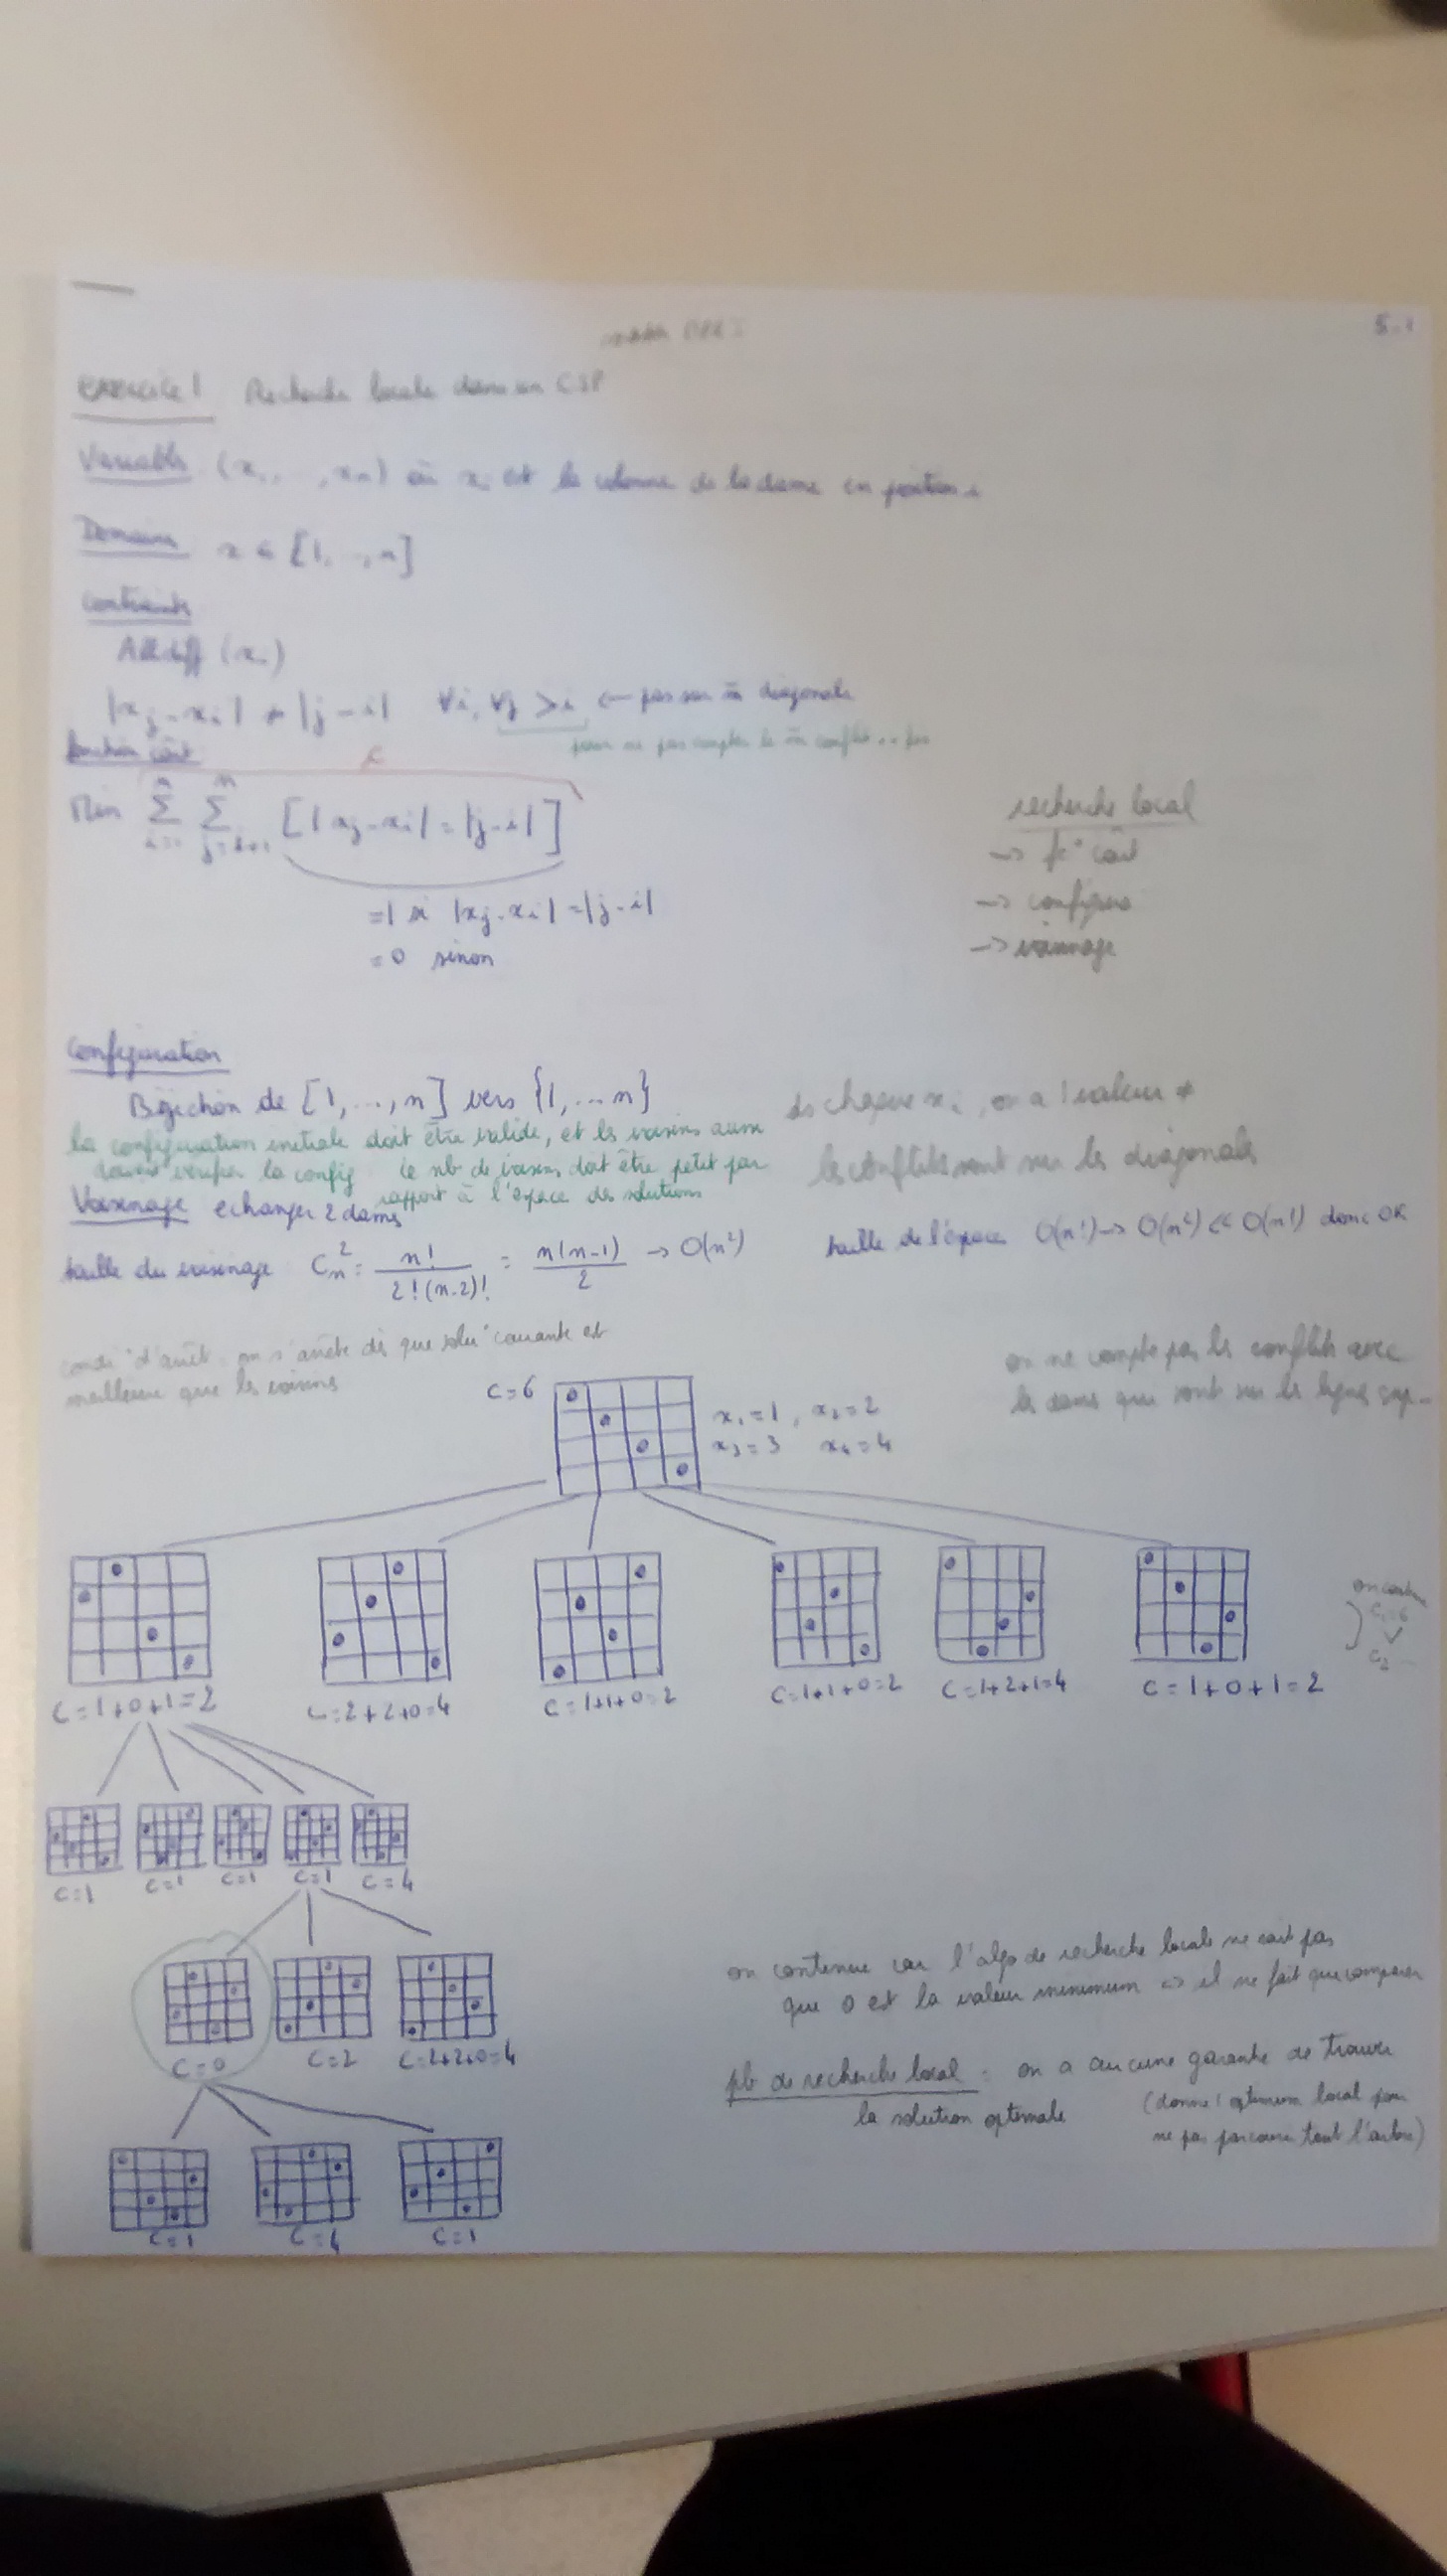 5-1
EXERCICE 1 Recherche locale dans un CSP
Variables (x1, .., xn) où xi est la colonne de la dame en position i
Domaine x ∈ [1, .., n]
Contraintes
Alldiff (xi)
|xj - xi| ≠ |j - i| ∀i, ∀j > i <- pas sur m̄ diagonale
pour ne pas compter le m̄ conflit
fonction coût
Min Σ Σ [|xj - xi| = |j - i|]
=1 si |xj - xi| = |j - i|
=0 sinon
recherche local
-> fc° coût
-> configura°
-> voisinage
Configuration
Bijection de [1, ..., n] vers {1, ... n}
ds chaque xi, on a 1 valeur ≠
les conflits sont sur les diagonales
la configuration initiale doit être valide, et les voisins aussi
vérifier la config le nb de voisins doit être petit par
rapport à l'espace des solutions
Voisinage echanger 2 dames
taille du voisinage C_n^2 = n! / 2!(n-2)! = n(n-1) / 2 -> O(n²)
taille de l'espace O(n!) -> O(n²) << O(n!) donc OK
condi° d'arrêt : on s'arrête dès que solu° courante est
meilleure que les voisins
on ne compte pas les conflits avec
les dames qui sont sur les lignes sup.
C=6
x1=1, x2=2
x3=3 x4=4
C=1+0+1=2
C=2+2+0=4
C=1+1+0=2
C=1+1+0=2
C=1+2+1=4
C=1+0+1=2
C=1
C=1
C=1
C=1
C=4
C=0
C=2
C=2+2+0=4
on continue car l'algo de recherche locale ne sait pas
que 0 est la valeur minimum => il ne fait que comparer
pb de recherche local : on a aucune garantie de trouver
la solution optimale
(donne 1 optimum local pour
ne pas parcourir tout l'arbre)
C=1
C=4
C=1